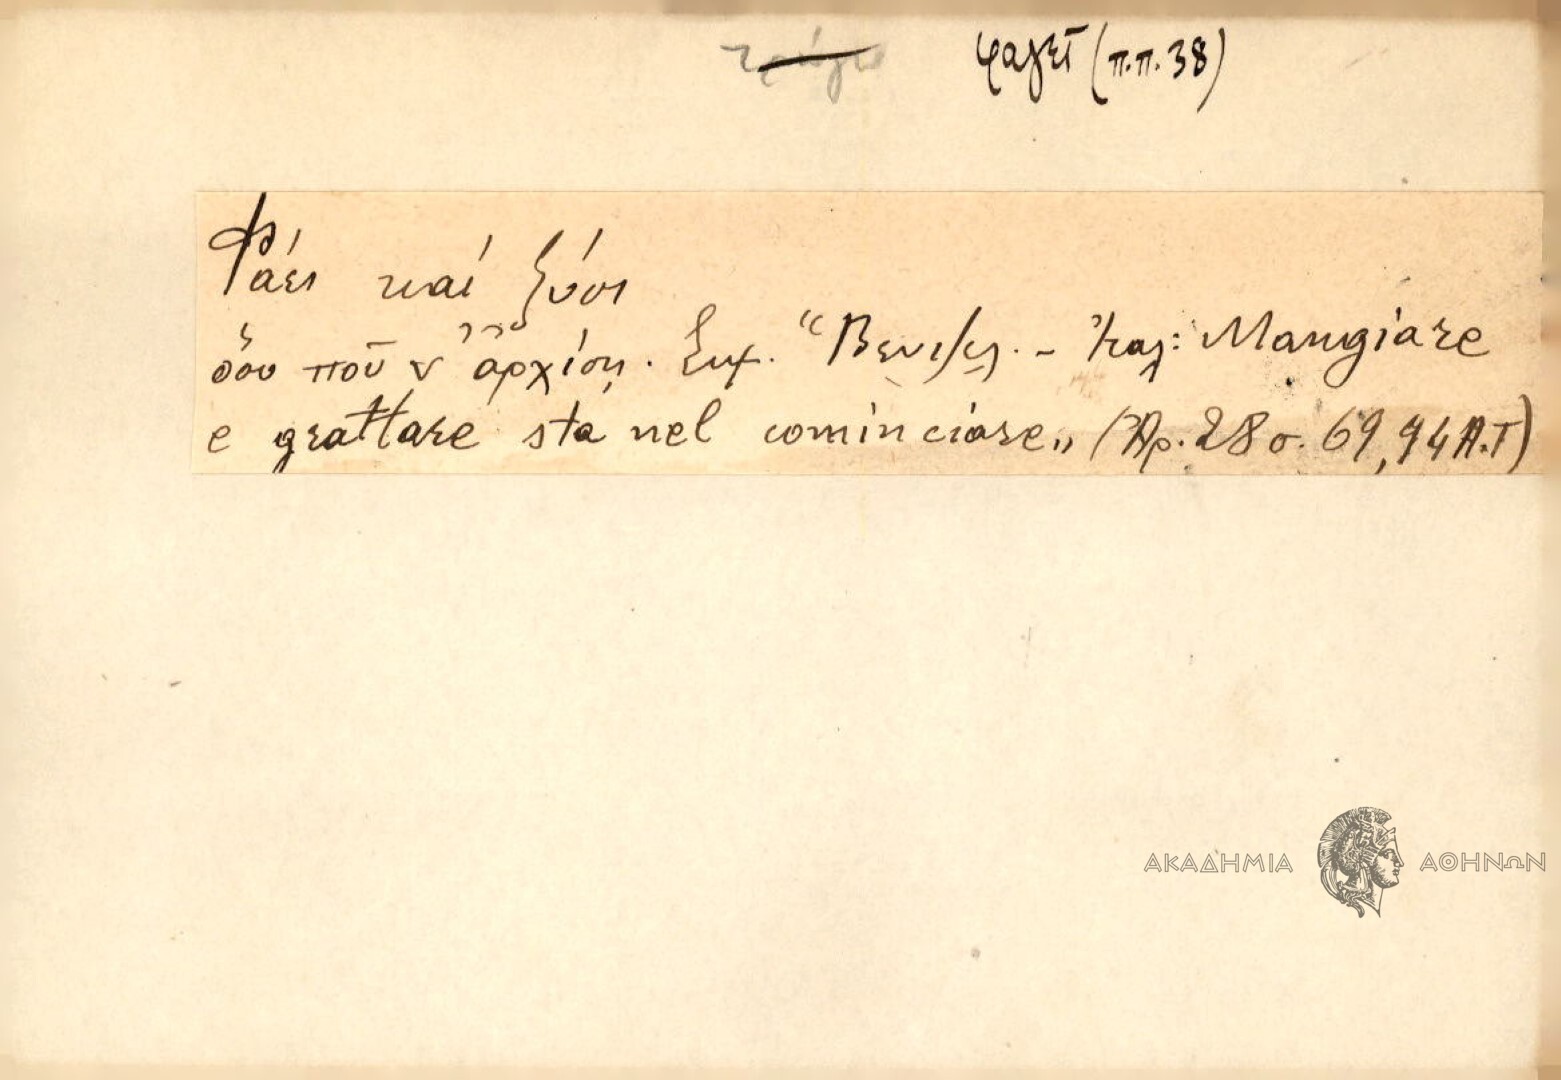 φαγεῖ (π.π. 38)
Φάει καί ξύσι
ὅσου ποῦ ν' ἀρχίση. Σημ. "Βενιζελ. - Ἰταλ: Mangiare
e grattare sta nel cominciare" (Ἀρ. 28 σ. 69, 94 Α.Τ)
ΑΚΑΔΗΜΙΑ ΑΘΗΝΩΝ